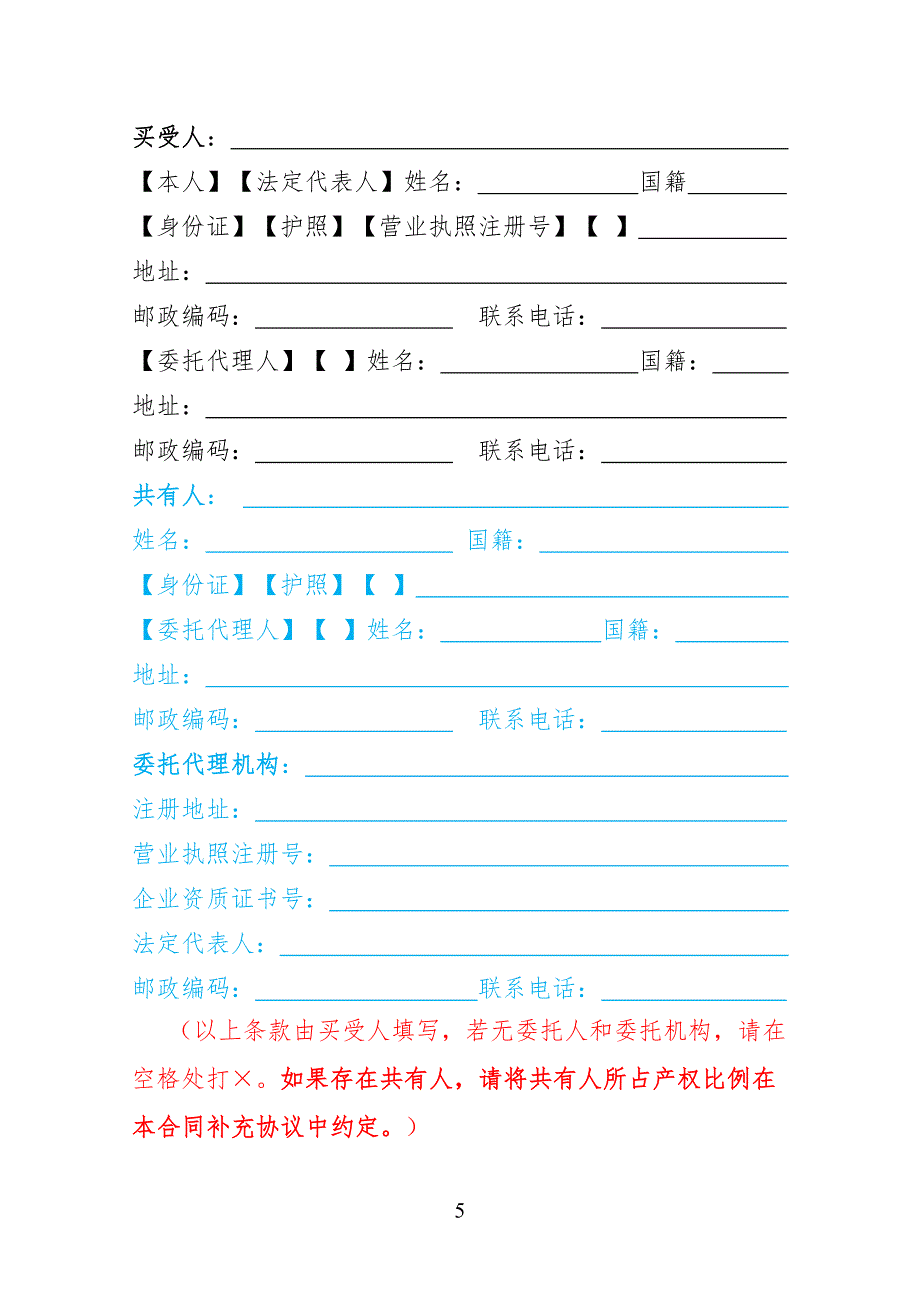 买受人：
【本人】【法定代表人】姓名：国籍
【身份证】【护照】【营业执照注册号】【 】
地址：
邮政编码： 联系电话：
【委托代理人】【 】姓名：国籍：
地址：
邮政编码： 联系电话：
共有人：
姓名： 国籍：
【身份证】【护照】【 】
【委托代理人】【 】姓名：国籍：
地址：
邮政编码： 联系电话：
委托代理机构：
注册地址：
营业执照注册号：
企业资质证书号：
法定代表人：
邮政编码：联系电话：
（以上条款由买受人填写，若无委托人和委托机构，请在
空格处打×。如果存在共有人，请将共有人所占产权比例在
本合同补充协议中约定。）
5